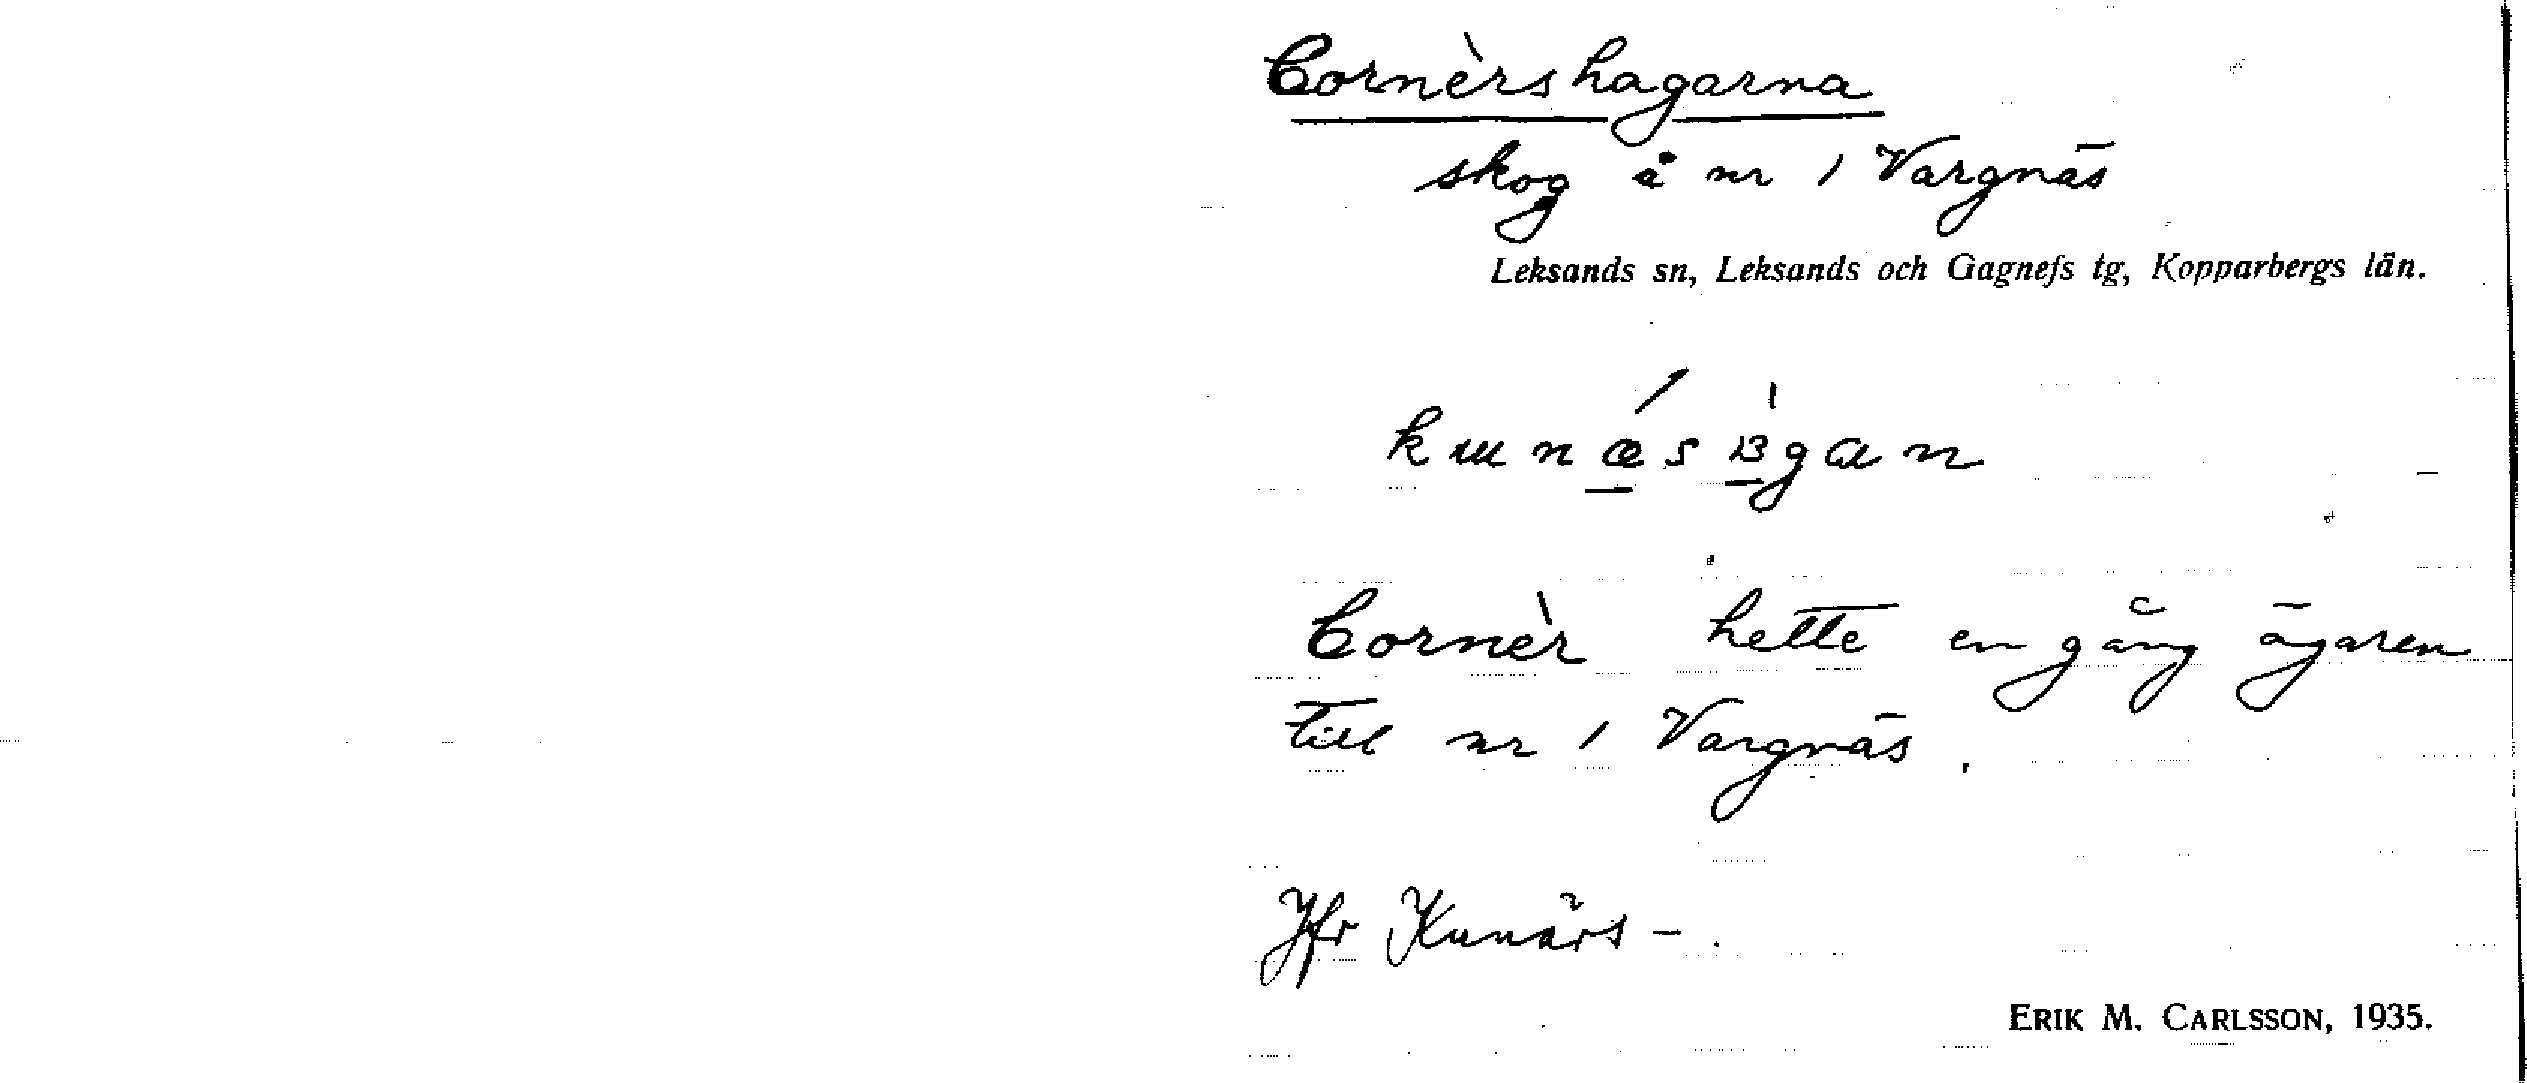 Cornèrshagarna
skog å nr 1 Vargnäs
Leksands sn, Leksands och Gagnefs tg, Kopparbergs län.
Cornèr hette en gång ägaren
till nr 1 Vargnäs.
Jfr Kunärs-.
ERIK M. CARLSSON, 1935.